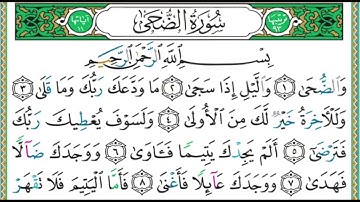 ترتيبها ٩٣ سُورَةُ الضُّحَىٰ آياتها ١١
بِسْمِ اللَّهِ الرَّحْمَٰنِ الرَّحِيمِ
وَالضُّحَىٰ ١ وَاللَّيْلِ إِذَا سَجَىٰ ٢ مَا وَدَّعَكَ رَبُّكَ وَمَا قَلَىٰ ٣
وَلَلْءَاخِرَةُ خَيْرٌ لَّكَ مِنَ الْأُولَىٰ ٤ وَلَسَوْفَ يُعْطِيكَ رَبُّكَ
فَتَرْضَىٰ ٥ أَلَمْ يَجِدْكَ يَتِيمًا فَـَٔاوَىٰ ٦ وَوَجَدَكَ ضَآلًّا
فَهَدَىٰ ٧ وَوَجَدَكَ عَآئِلًا فَأَغْنَىٰ ٨ فَأَمَّا الْيَتِيمَ فَلَا تَقْهَرْ